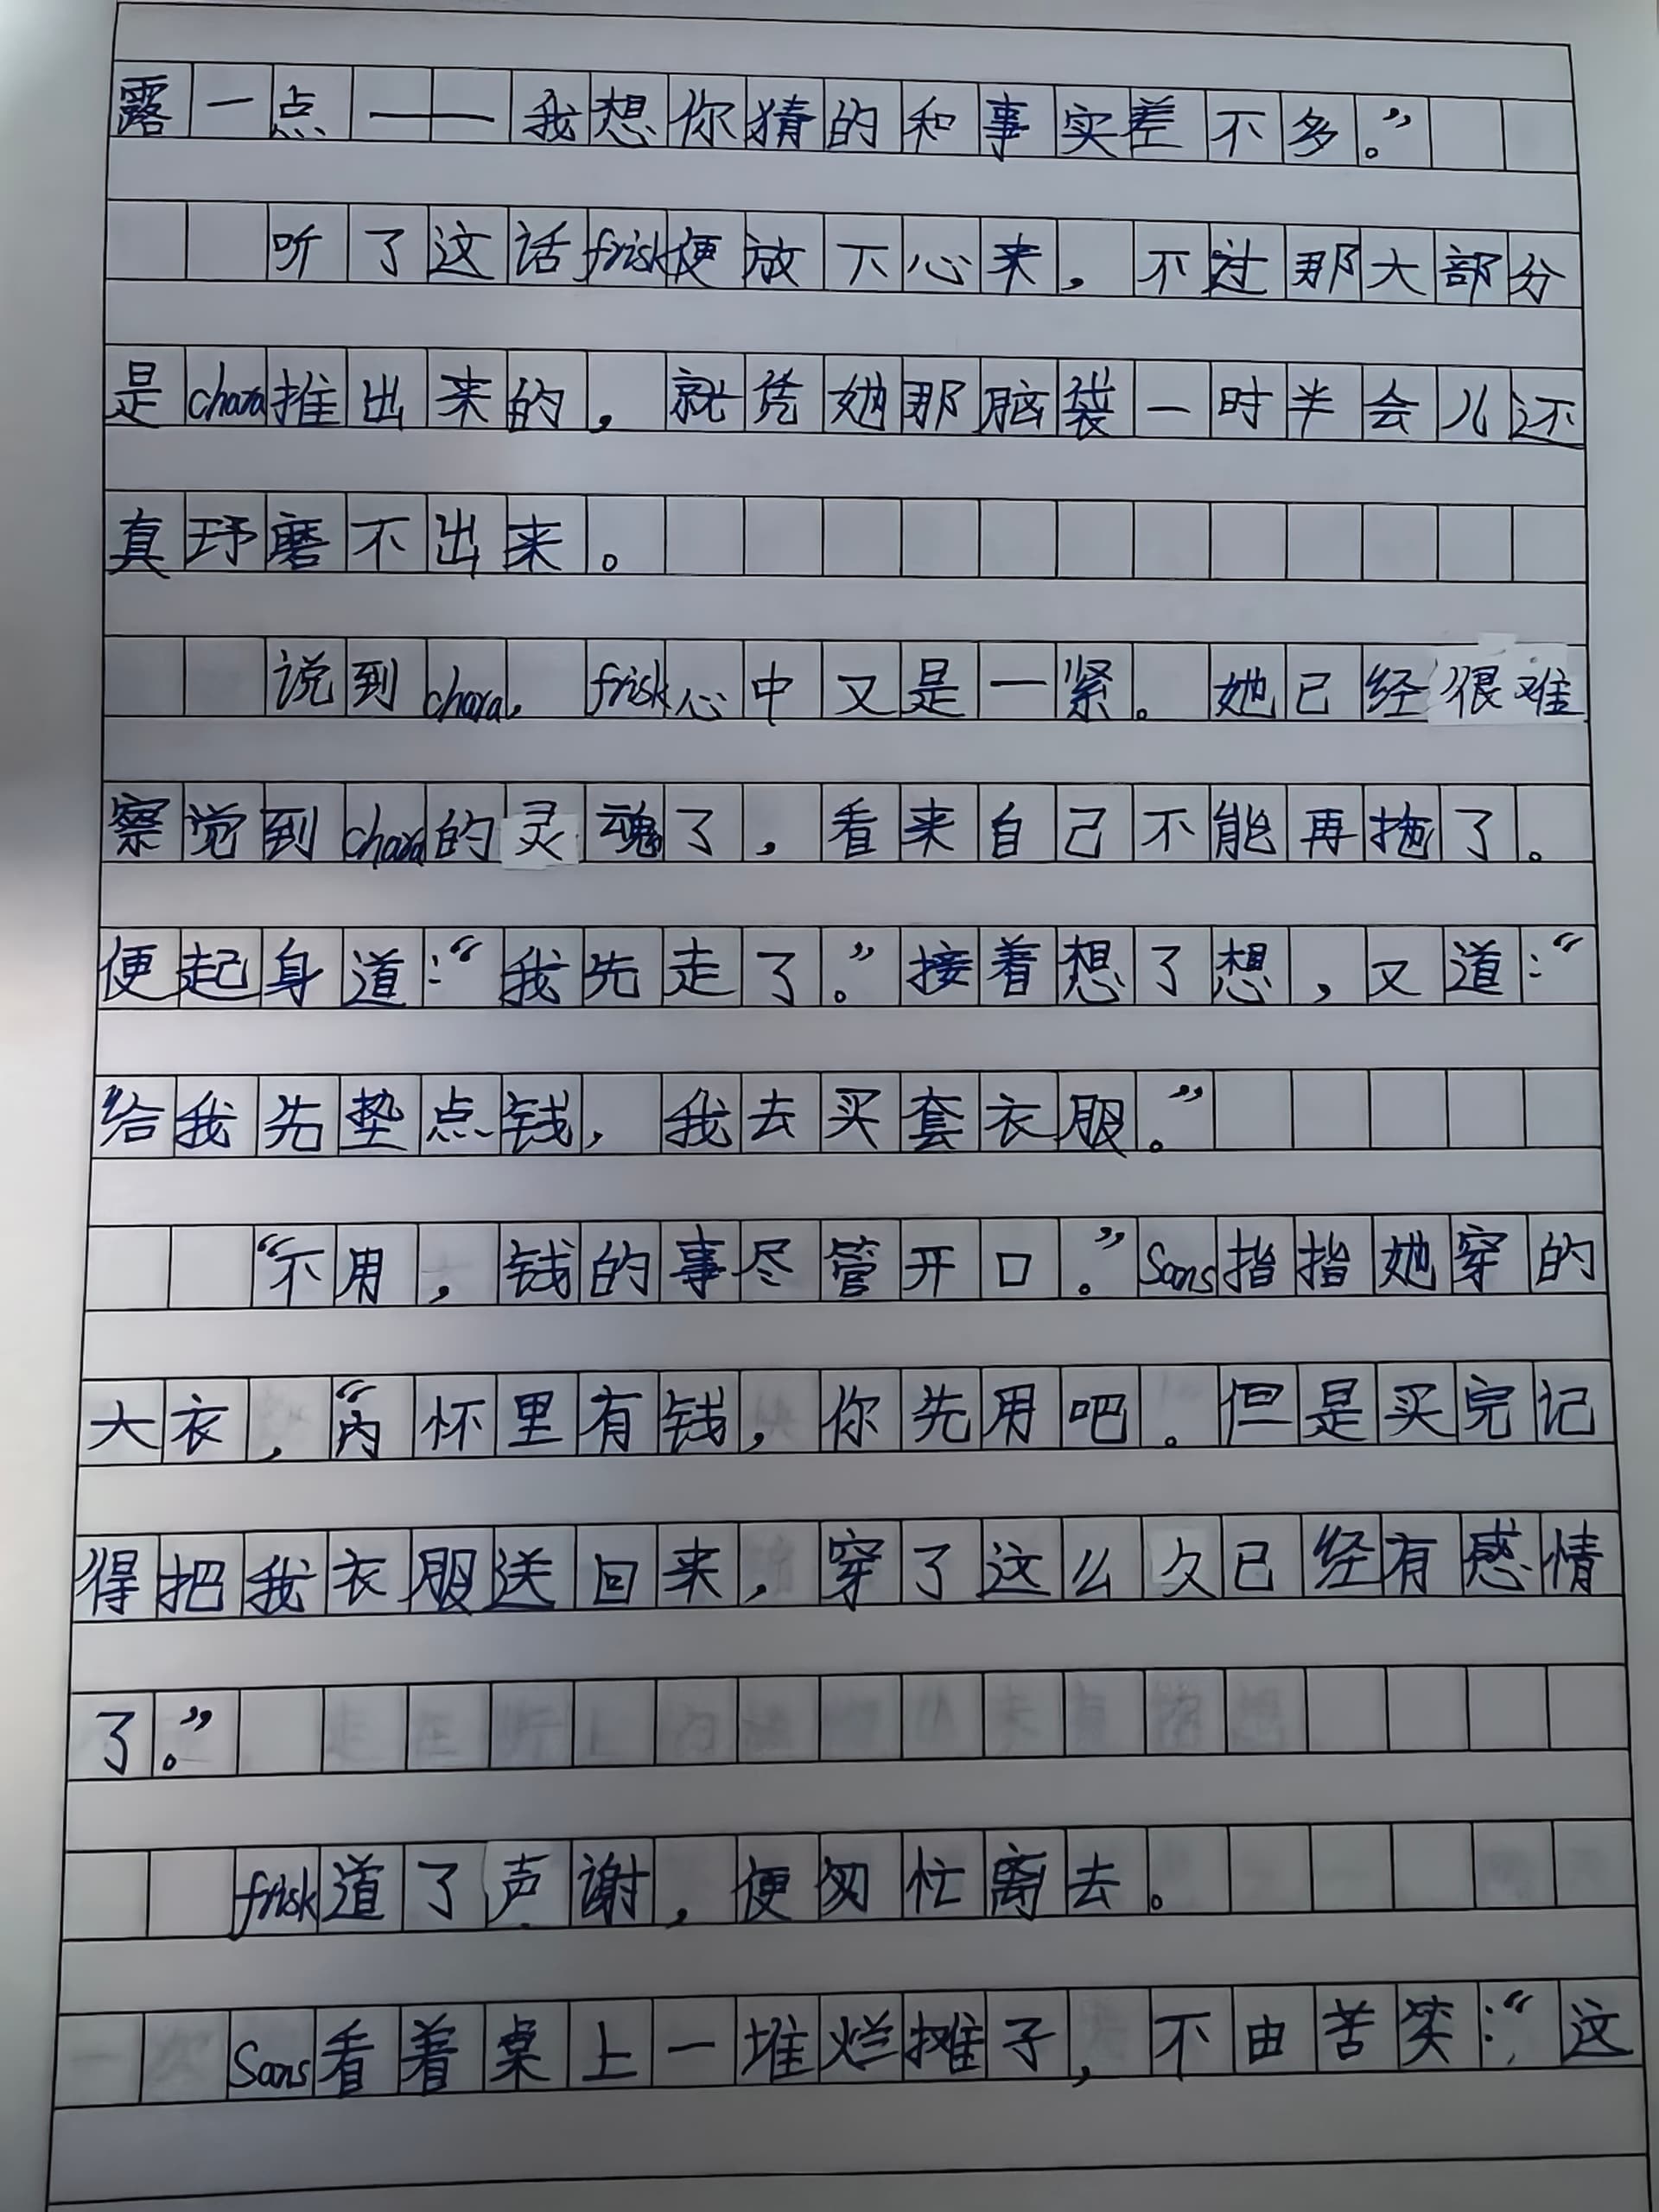 露一点——我想你猜的和事实差不多。”
听了这话frisk便放下心来，不过那大部分
是chara推出来的，就凭她那脑袋一时半会儿还
真琢磨不出来。
说到chara，frisk心中又是一紧。她已经很难
察觉到chara的灵魂了，看来自己不能再拖了。
便起身道：“我先走了。”接着想了想，又道：“
给我先垫点钱，我去买套衣服。”
“不用，钱的事尽管开口。”Sans指指她穿的
大衣，“内怀里有钱，你先用吧。但是买完记
得把我衣服送回来，穿了这么久已经有感情
了。”
frisk道了声谢，便匆忙离去。
Sans看着桌上一堆烂摊子，不由苦笑：“这